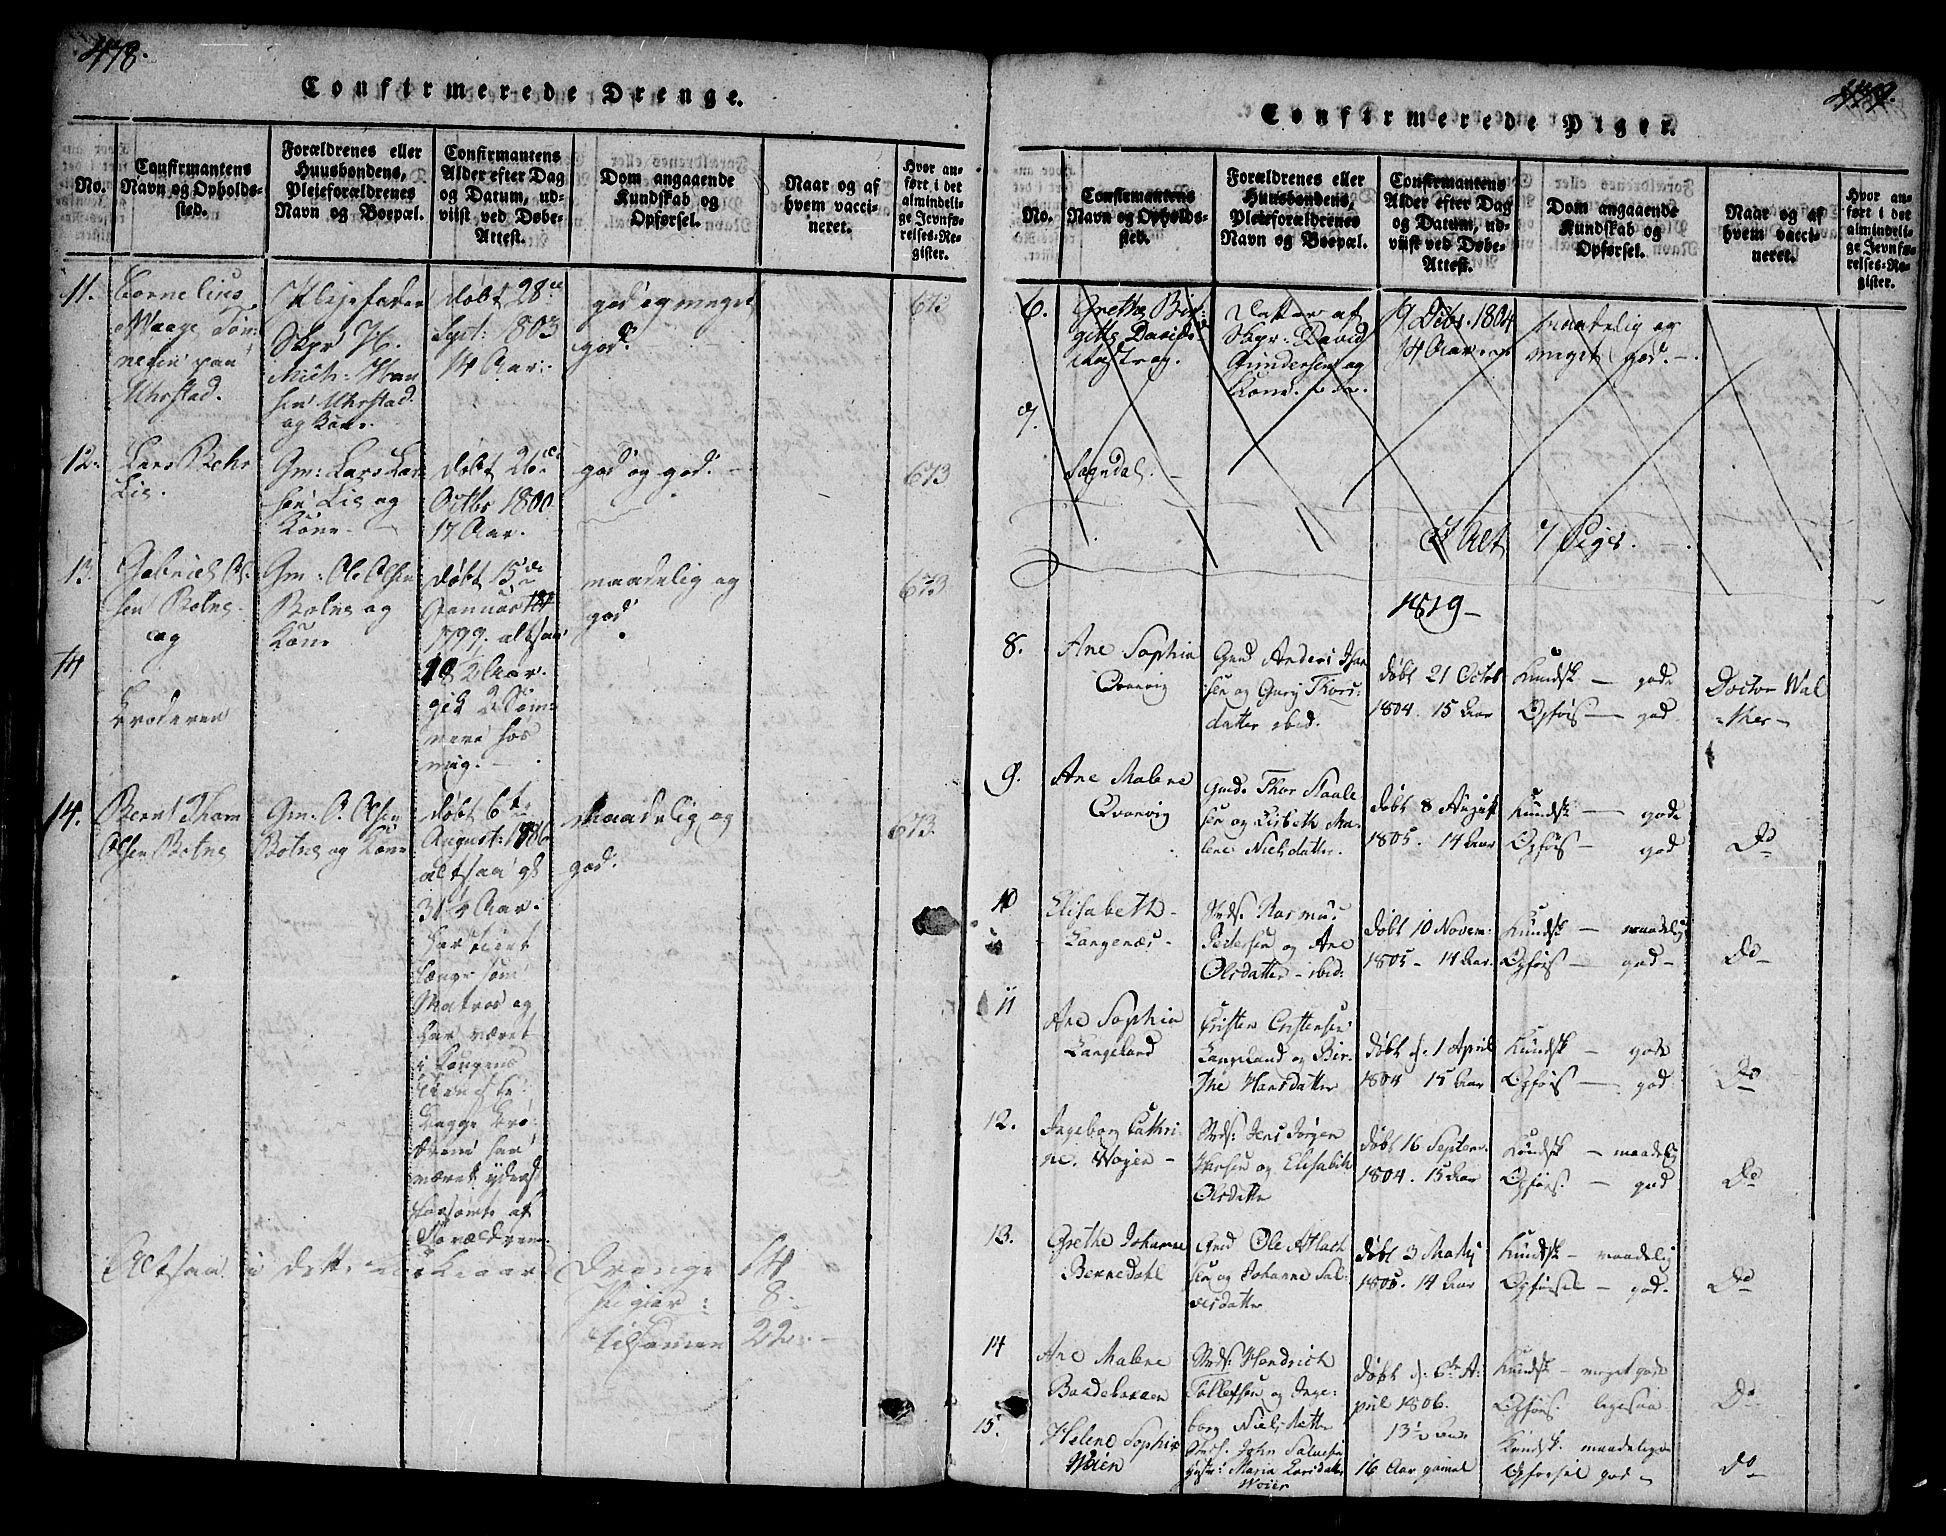 478.
Confirmerede Drenge.
No.
Confirmantens
Navn og Opholds-
sted.
Forældrenes eller
Huusbondens,
Pleieforældrenes
Navn og Boepæl.
Confirmantens
Alder efter Dag
og Datum, ud-
viist ved Døbe-
Attest.
Dom angaaende
Kundskab og
Opførsel.
Naar og af
hvem vacci-
neret.
Hvor an-
ført i det
almindeli-
ge Jevnfø-
relses-Re-
gister.
11.
Cornelius
Waage Tøn-
nesen paa
Uhrstad.
Plejefader
Skpr H.
Mich: Han
sen Uhrstad
og Kone.
døbt 28de
Sept: 803
14 Aar.
god og meget
god.
673
12.
Lars Behr
Lis.
Gm: Lars Lar
sen Lis og
Kone
døbt 26de
Octbr 1800
17 Aar.
god og god.
673
13.
Gabriel Ol-
sen Botne
og
Gm: Ole Olsen
Botne og
Kone
døbt 15de
Januar
1799. altsaa
18 2 Aar.
gik 2 Som-
mere hos
mig.
maadelig og
god
673
14
Broderen
14.
Bernt Thom
Olsen Botne
Gm. O. Olsen
Botne og Kone
døbt 6te
August: 1786
altsaa gl
31 4 Aar.
har tient
længe som
Matros og
har været
i Kongens
Tieneste:
begge Brø-
drene har
været yderst
forsømte af
Forældrene.
maadelig og
god.
673.
Altsaa i dette Kirkeaar
Drenge 14
Piger: 8.
tilsamen 22.
Confirmerede Piger.
No.
Confirmantens
Navn og Opholds-
sted.
Forældrenes eller
Huusbondens,
Pleieforældrenes
Navn og Boepæl.
Confirmantens
Alder efter Dag
og Datum, ud-
viist ved Døbe-
Attest.
Dom angaaende
Kundskab og
Opførsel.
Naar og af
hvem vacci-
neret.
Hvor an-
ført i det
almindeli-
ge Jevnfø-
relses-Re-
gister.
6.
Grethe Bir-
gitte Davids
Datter af
Skpr: David
Gundersen og
Kone.
9 Debr. 1804
14 Aar
maadelig og
meget god.
7.
Sogndal.
I Alt 7 Piger.
1819
8.
Ane Sophia
Qvanvig
Gmd Anders Han
sen og Gury Thors-
datter ibid.
døbt 21 Octob
1804. 15 Aar
Kundsk — gode
Opførs — god
Doctor Wal
ther
9.
Ane Malene
Qvanvig
Gmd. Thor Staale
sen og Lisbeth Ma-
lene Nielsdatter.
døbt 8 August
1805. 14 Aar
Kundsk — gode
Opførs — god
Do
10
Elisabeth
Langenæs
Strds. Rasmus
Pedersen og Ane
Olsdatter ibid:
døbt 10 Novem:
1805 - 14 Aar.
Kundsk — maadelig
Opførs — god
Do
11
Ane Sophia
Langeland
Cristen Cristensen
Langeland og Bir-
the Hansdatter
døbt d. 1 April
1804 15 Aar
Kundsk — gode
Opførs — god
Do
12.
Ingeborg Cathri-
ne. Woien
Strds: Jens Jørgen
Hansen og Elisabeth
Olsdatter
døbt 16 Septem.
1804. 15 Aar
Kundsk — maadelig
Opførs — god
Do
13.
Grethe Johanne
Bernedahl
Gmd Ole Atlach
sen og Johanne Sal-
vesdatter
døbt 3 Martj
1805. 14 Aar
Kundsk — maadelig
Opførsel — god
Do
14
Ane Malene
Strds: Hendrich
Tollefsen og Inge-
borg Nielsdatter
døbt d. 6te A-
pril 1806.
13½ Aar
Kundsk — meget gode
Opførs. ligesaa
Do
15.
Helene Sophie
Woien
Strds. John Salvesen
Hustr: Maria Larsdatter
Woien
16 Aar gamel
Kundsk. maadelige
Opførsel god
Do